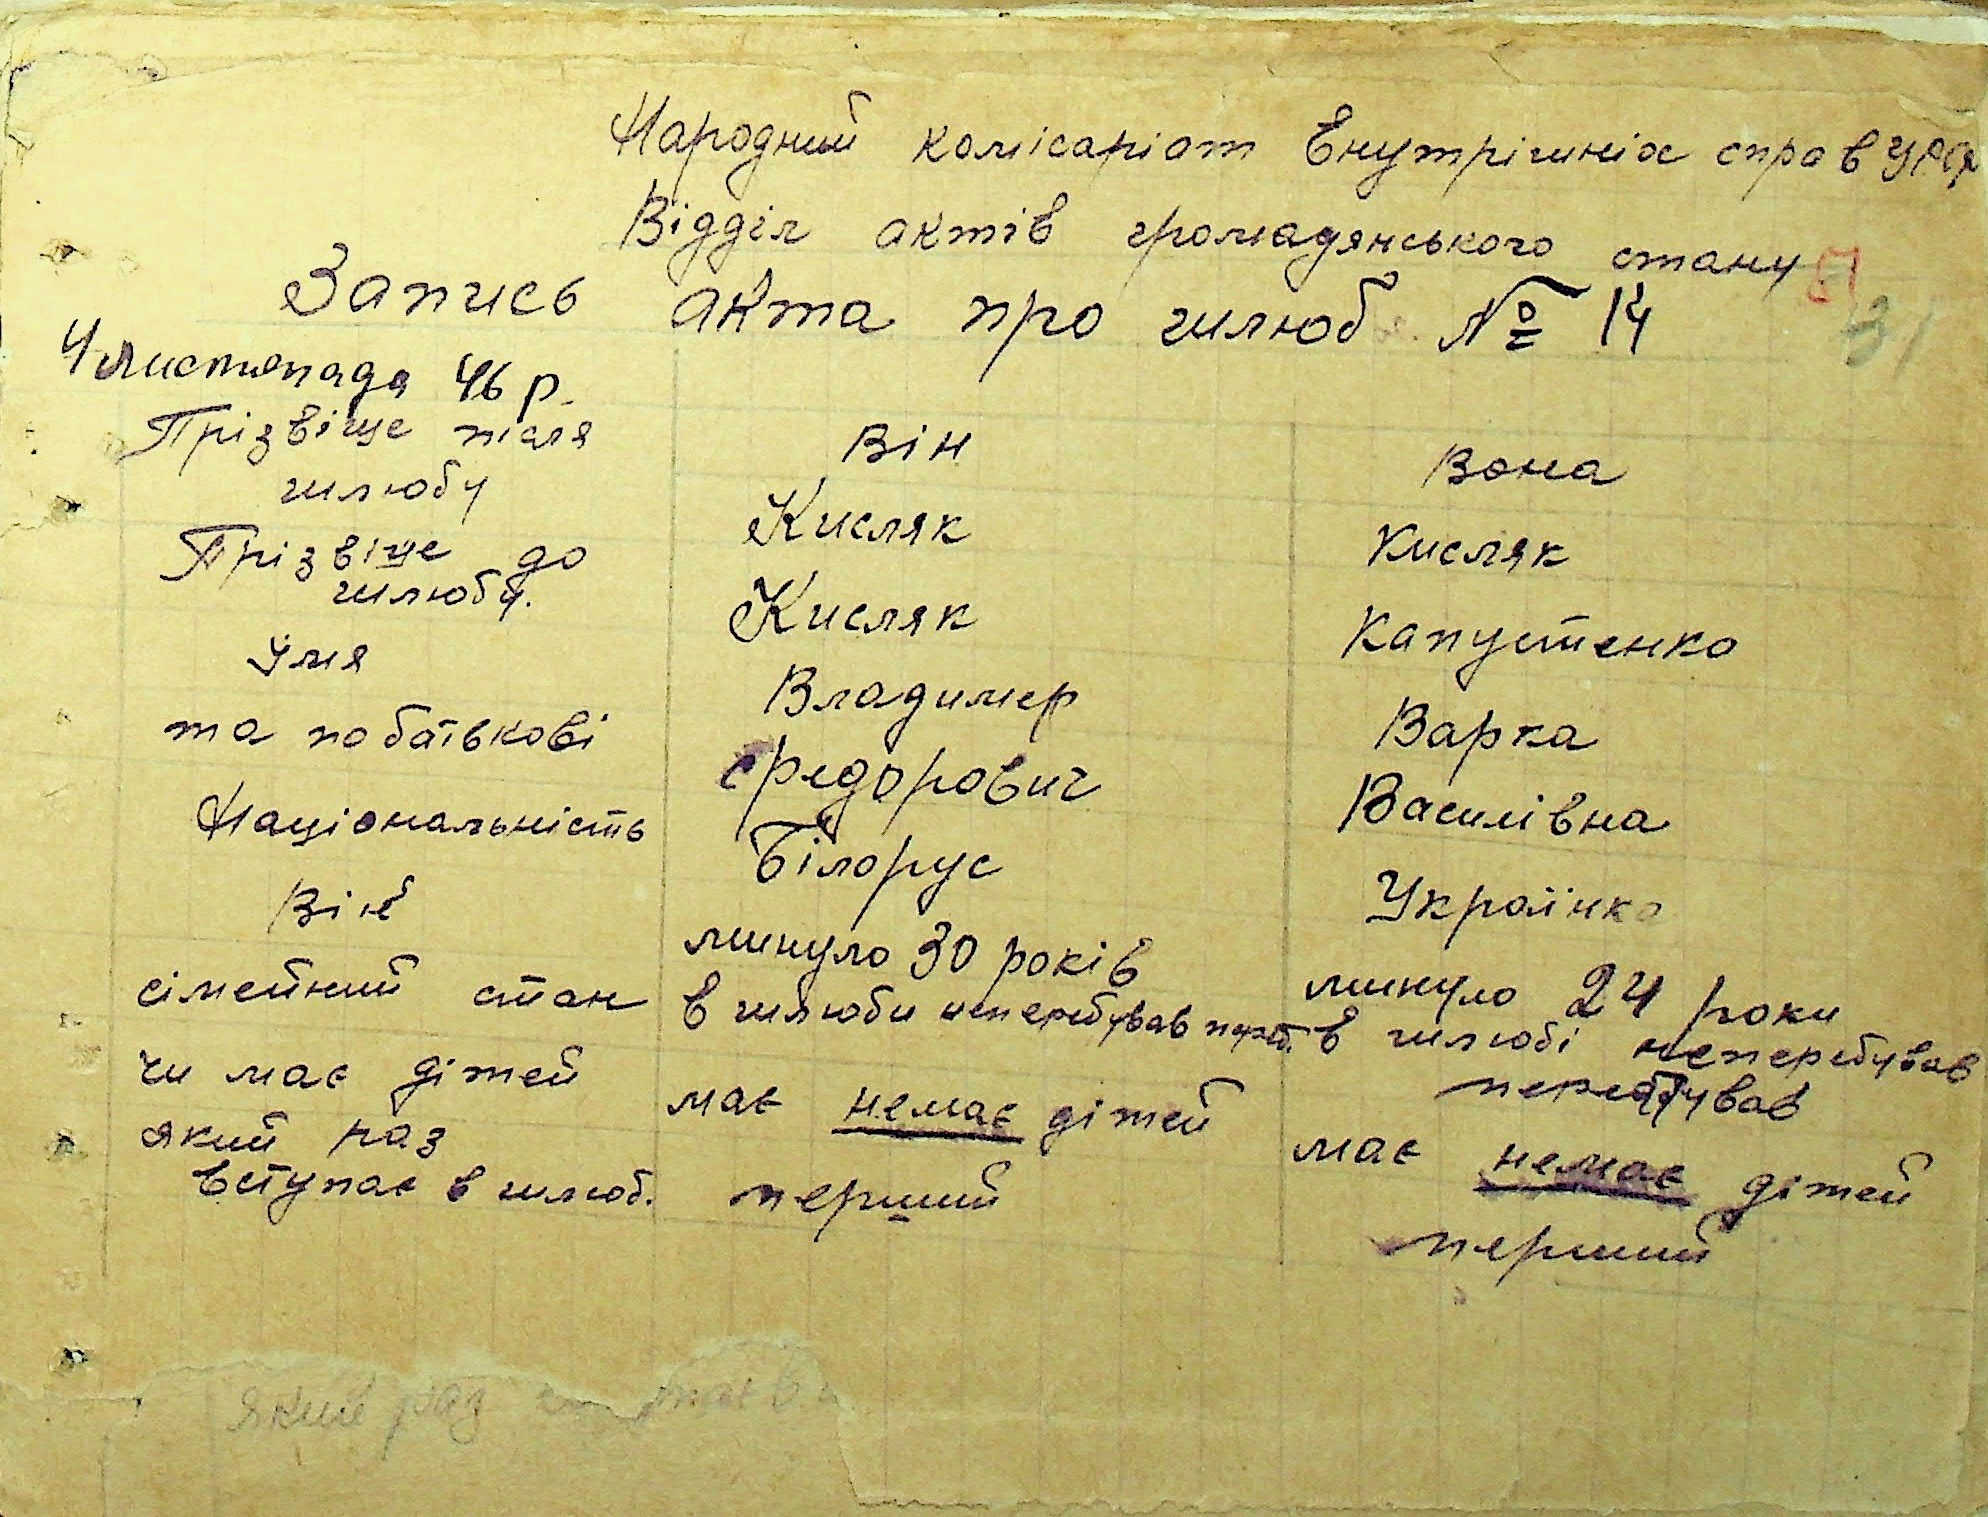 Народний комісаріат Внутрішніх справ УРСР
Відділ актів громадянського стану
Запись акта про шлюб № 14
31
4 листопада 46 р.
Він Вона
Прізвіще після шлюбу Кисляк Кисляк
Прізвіще до шлюбу. Кисляк Капустенко
Імя Владимер Варка
та побатькові Федорович Василівна
Національність Білорус Українка
Вік минуло 30 років минуло 24 роки
сімейний стан в шлюби неперебував в шлюбі неперебував
перебував
чи має дітей має немає дітей має немає дітей
який раз
вступає в шлюб. перший перший
який раз